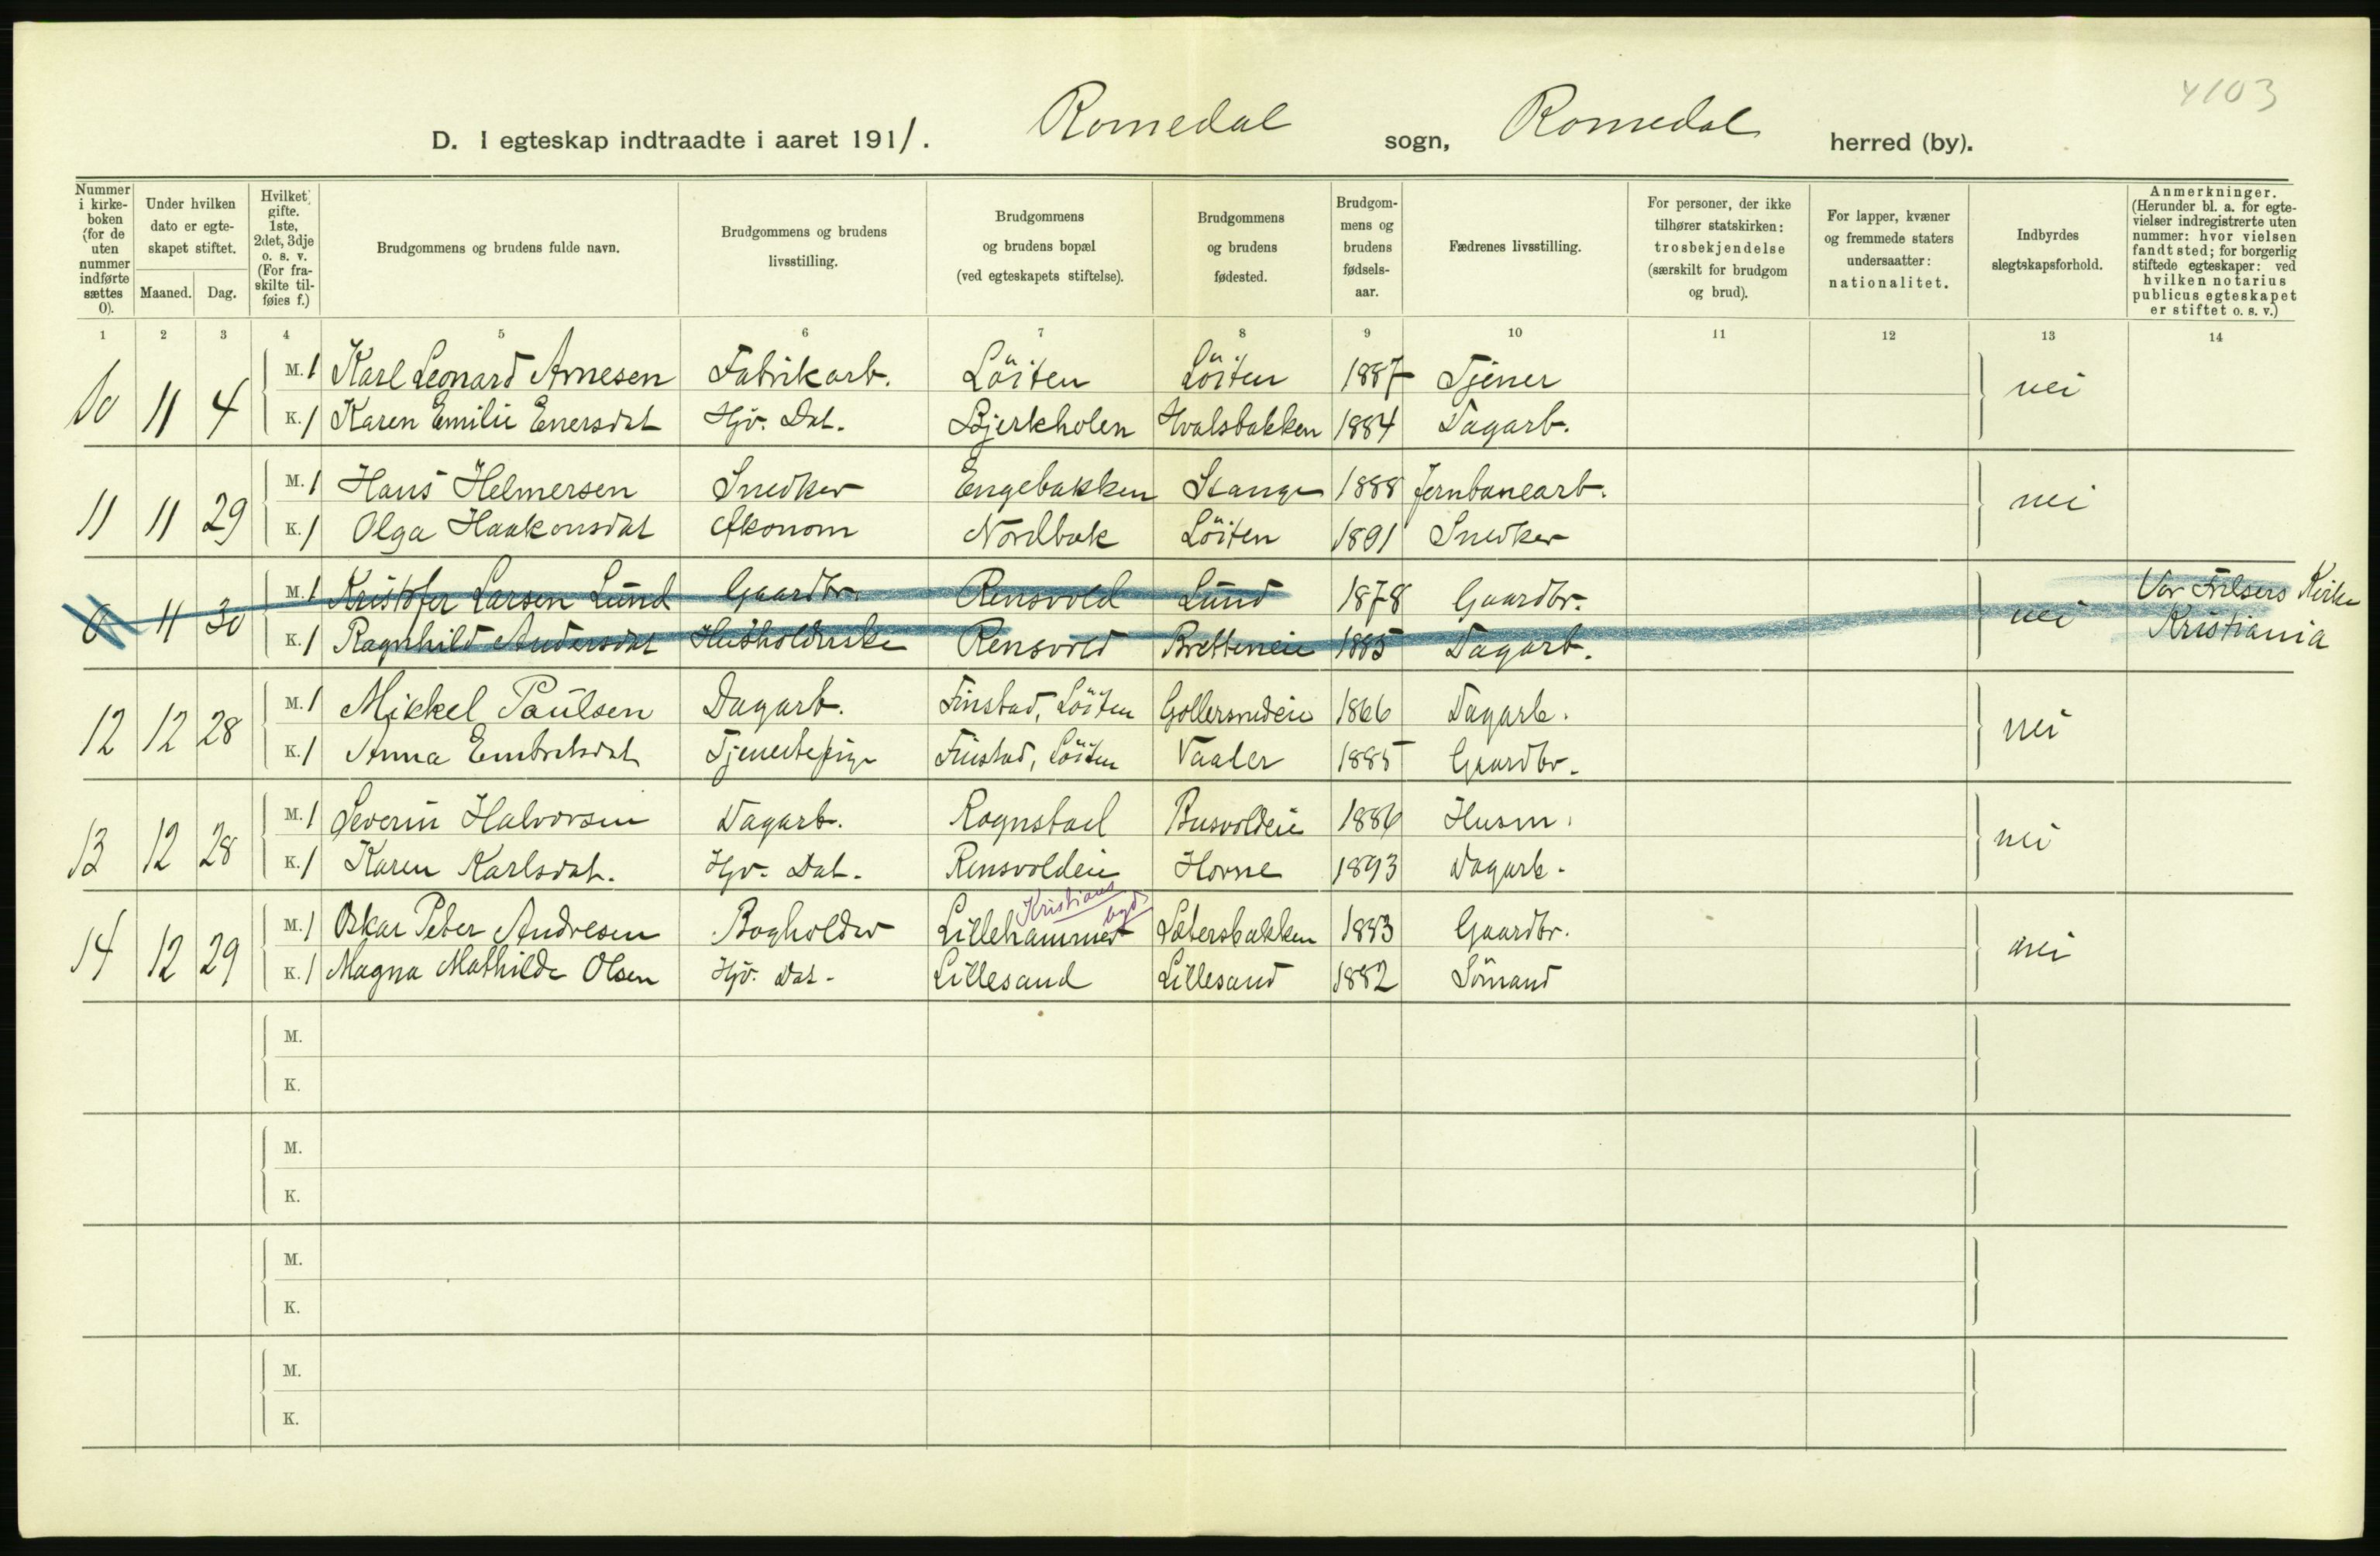 4103
D. I egteskap indtraadte i aaret 1911. Romedal sogn, Romedal herred (by).
Nummer i kirkeboken (for de uten nummer indførte sættes 0).
Under hvilken dato er egteskapet stiftet.
Maaned. Dag.
Hvilket gifte. 1ste, 2det, 3dje o. s. v. (For fraskilte tilføies f.)
Brudgommens og brudens fulde navn.
Brudgommens og brudens livsstilling.
Brudgommens og brudens bopæl (ved egteskapets stiftelse).
Brudgommens og brudens fødested.
Brudgommens og brudens fødselsaar.
Fædrenes livsstilling.
For personer, der ikke tilhører statskirken: trosbekjendelse (særskilt for brudgom og brud).
For lapper, kvæner og fremmede staters undersaatter: nationalitet.
Indbyrdes slegtskapsforhold.
Anmerkninger. (Herunder bl. a. for egtevielser indregistrerte uten nummer: hvor vielsen fandt sted; for borgerlig stiftede egteskaper: ved hvilken notarius publicus egteskapet er stiftet o. s. v.)
1 2 3 4 5 6 7 8 9 10 11 12 13 14
10 11 4 M. 1 Karl Leonard Arnesen Fabrikarb. Löiten Löiten 1887 Tjener nei
K. 1 Karen Emilie Enersdat Hjv. Dat. Bjerkholen Hvalsbakken 1884 Dagarb.
11 11 29 M. 1 Hans Helmersen Snedker Engebakken Stange 1888 Jernbanearb. nei
K. 1 Olga Haakonsdat Økonom Nordbak Löiten 1891 Snedker
0 11 30 M. 1 Kristofer Larsen Lund Gaardbr. Rensvold Lund 1878 Gaardbr. nei Vor Frlsers Kirke
K. 1 Ragnhild Andersdat Husholderske Rensvold 1885 Dagarb. Kristiania
12 12 28 M. 1 Mikkel Paulsen Dagarb. Finstad, Löiten 1866 Dagarb. nei
K. 1 Anna Embretsdat Tjenestepige Finstad, Löiten Vaaler 1885 Gaardbr.
13 12 28 M. 1 Severin Halvorsen Dagarb. Rognstad 1886 Husm. nei
K. 1 Karen Karlsdat. Hjv. Dat. Rensvoldeie Horne 1893 Dagarb.
Kristians bygd
14 12 29 M. 1 Oskar Peter Andresen Bogholder Lillehammer Sætersbakken 1883 Gaardbr. nei
K. 1 Magna Mathilde Olsen Hjv. Dat. Lillesand Lillesand 1882 Sömand
M.
K.
M.
K.
M.
K.
M.
K.